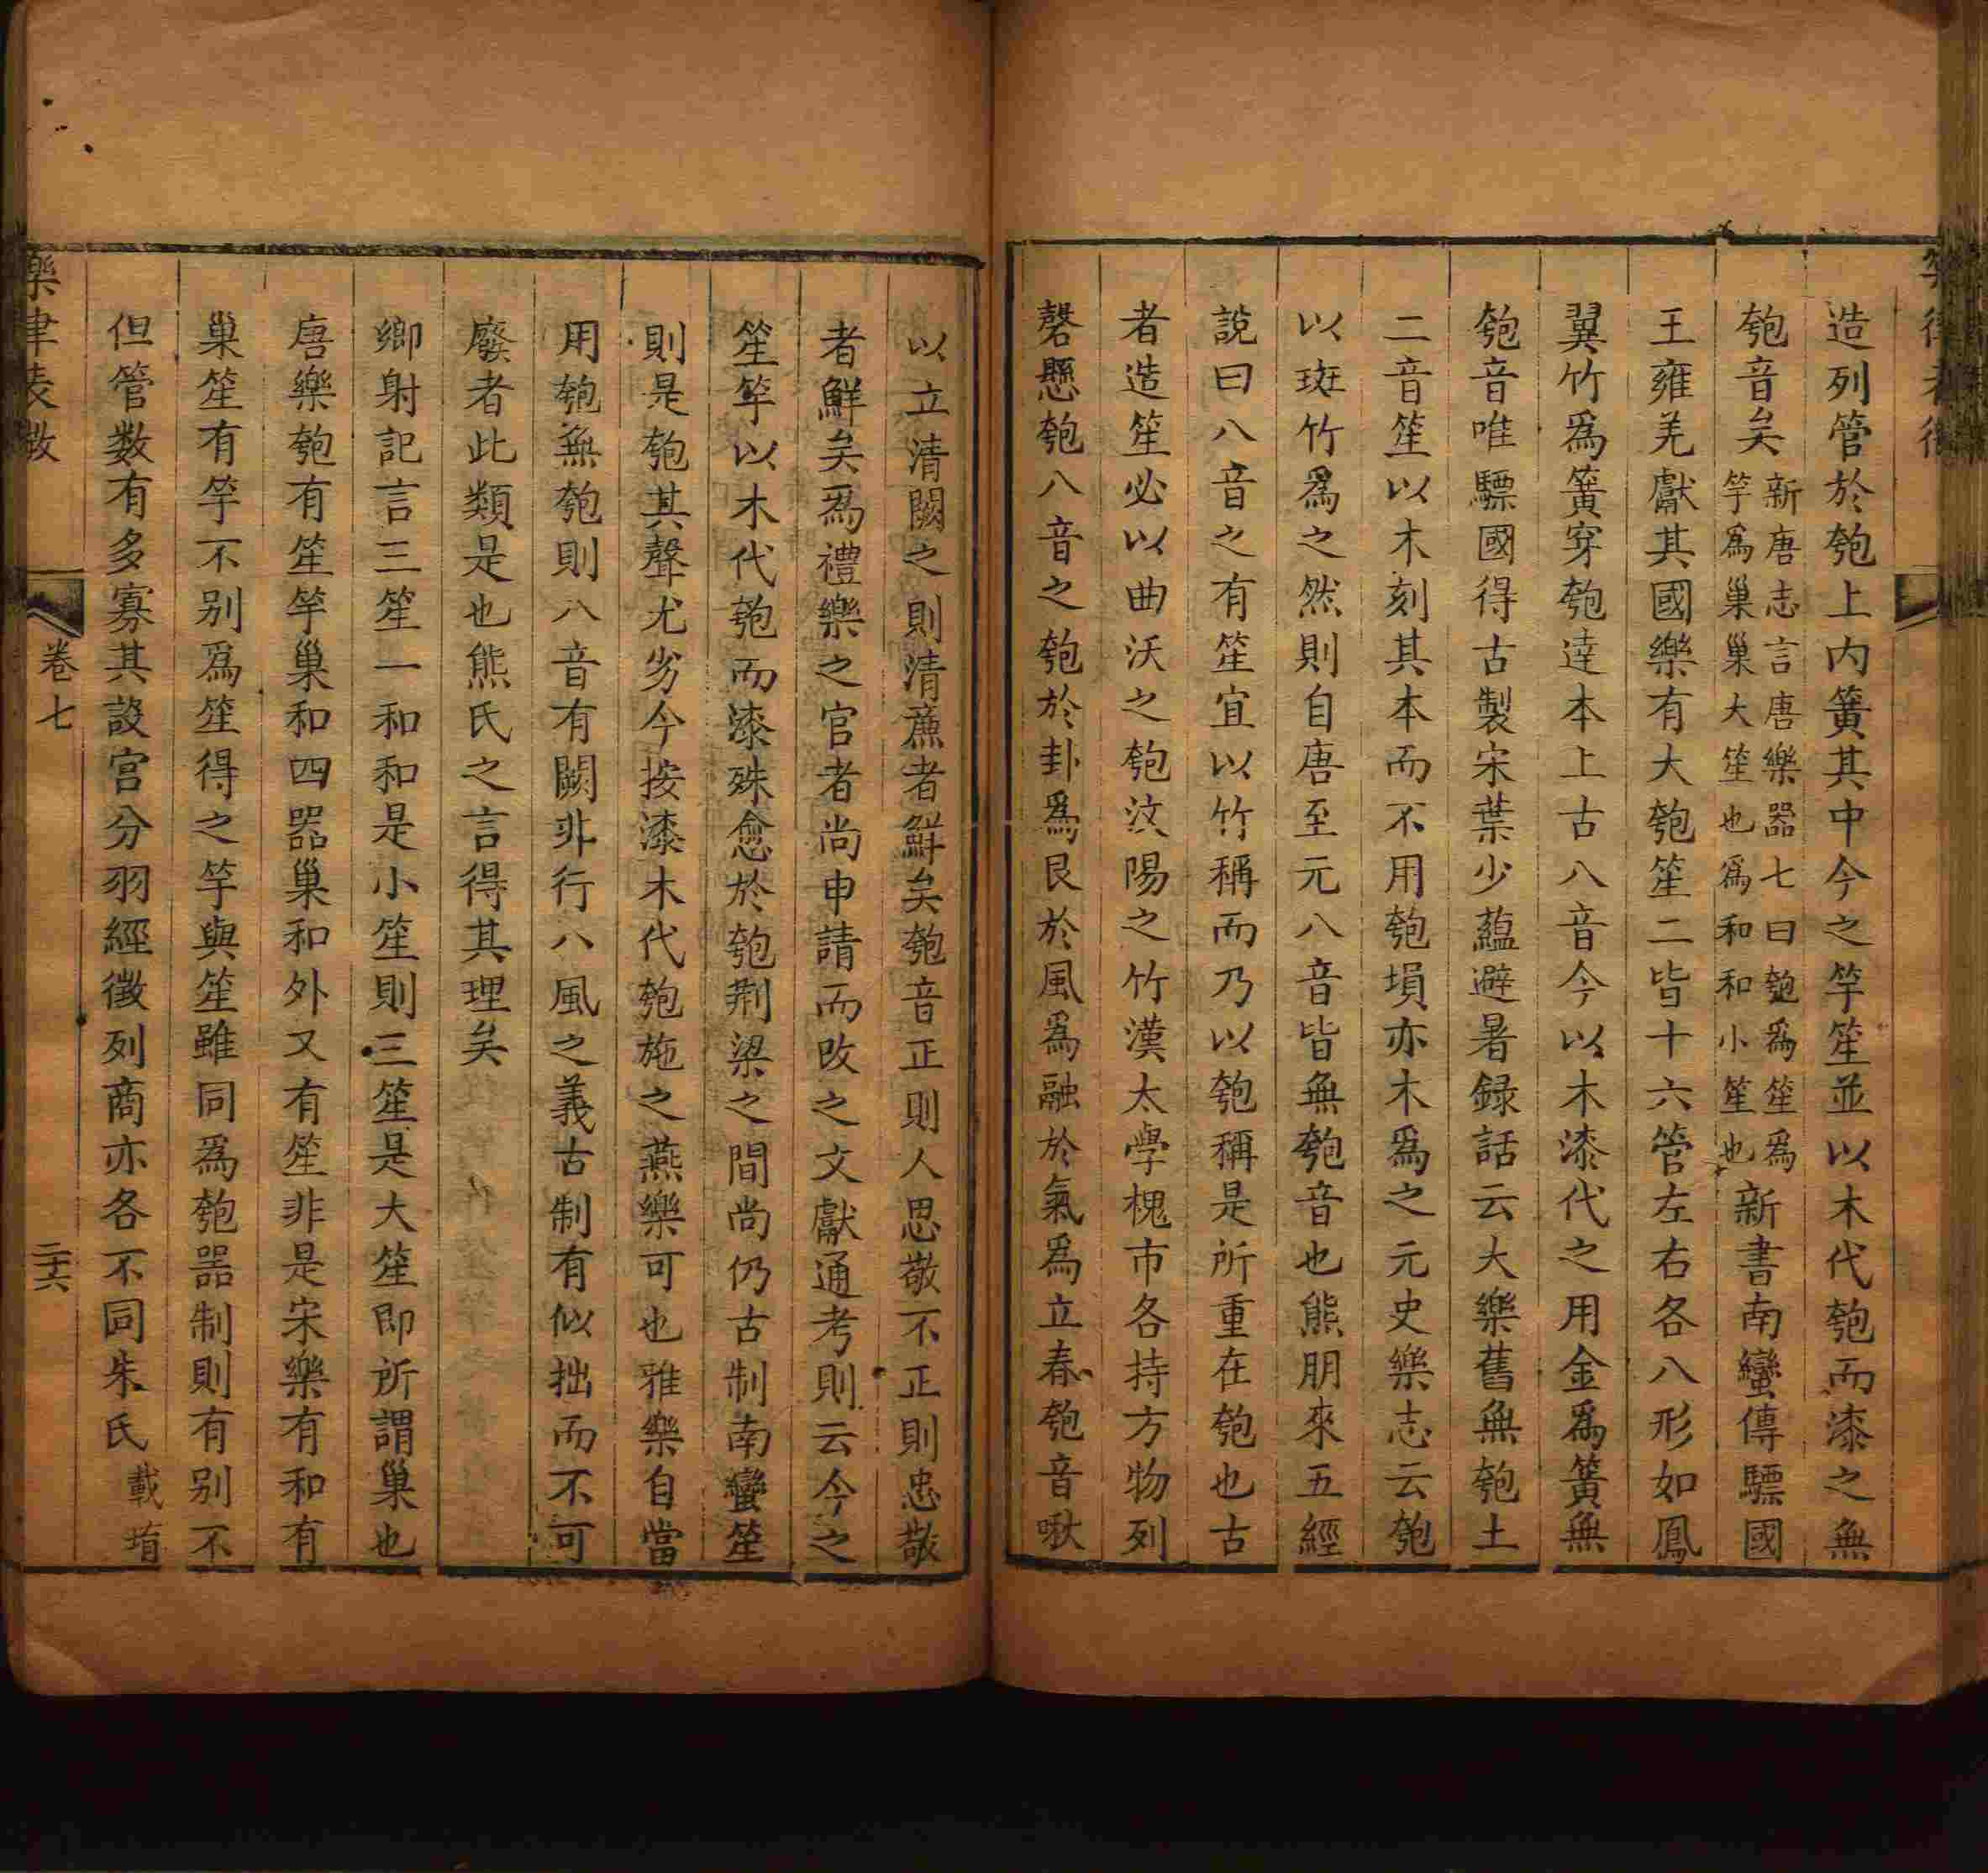 造列管於匏上内簧其中今之竽笙並以木代匏而漆之無
匏音矣
新唐志言唐樂器七曰匏爲笙爲
竽爲巢巢大笙也爲和和小笙也
新書南蠻傳驃國
王雍羌獻其國樂有大匏笙二皆十六管左右各八形如鳳
翼竹爲簧穿匏達本上古八音今以木漆代之用金爲簧無
匏音唯驃國得古製宋葉少蘊避暑録話云大樂舊無匏土
二音笙以木刻其本而不用匏塤亦木爲之元史樂志云匏
以斑竹爲之然則自唐至元八音皆無匏音也熊朋來五經
說曰八音之有笙宜以竹稱而乃以匏稱是所重在匏也古
者造笙必以曲沃之匏汶陽之竹漢太學槐市各持方物列
磬懸匏八音之匏於卦爲艮於風爲融於氣爲立春匏音啾
以立清闕之則清廉者鮮矣匏音正則人思敬不正則忠敬
者鮮矣爲禮樂之官者尚申請而改之文獻通考則云今之
笙竽以木代匏而漆殊愈於匏荆梁之間尚仍古制南蠻笙
則是匏其聲尤劣今按漆木代匏施之燕樂可也雅樂自當
用匏無匏則八音有闕非行八風之義古制有似拙而不可
廢者此類是也熊氏之言得其理矣
鄉射記言三笙一和和是小笙則三笙是大笙即所謂巢也
唐樂匏有笙竽巢和四器巢和外又有笙非是宋樂有和有
巢笙有竽不别爲笙得之竽與笙雖同爲匏器制則有别不
但管数有多寡其設宫分羽經徵列商亦各不同朱氏
載堉
卷七
二十六